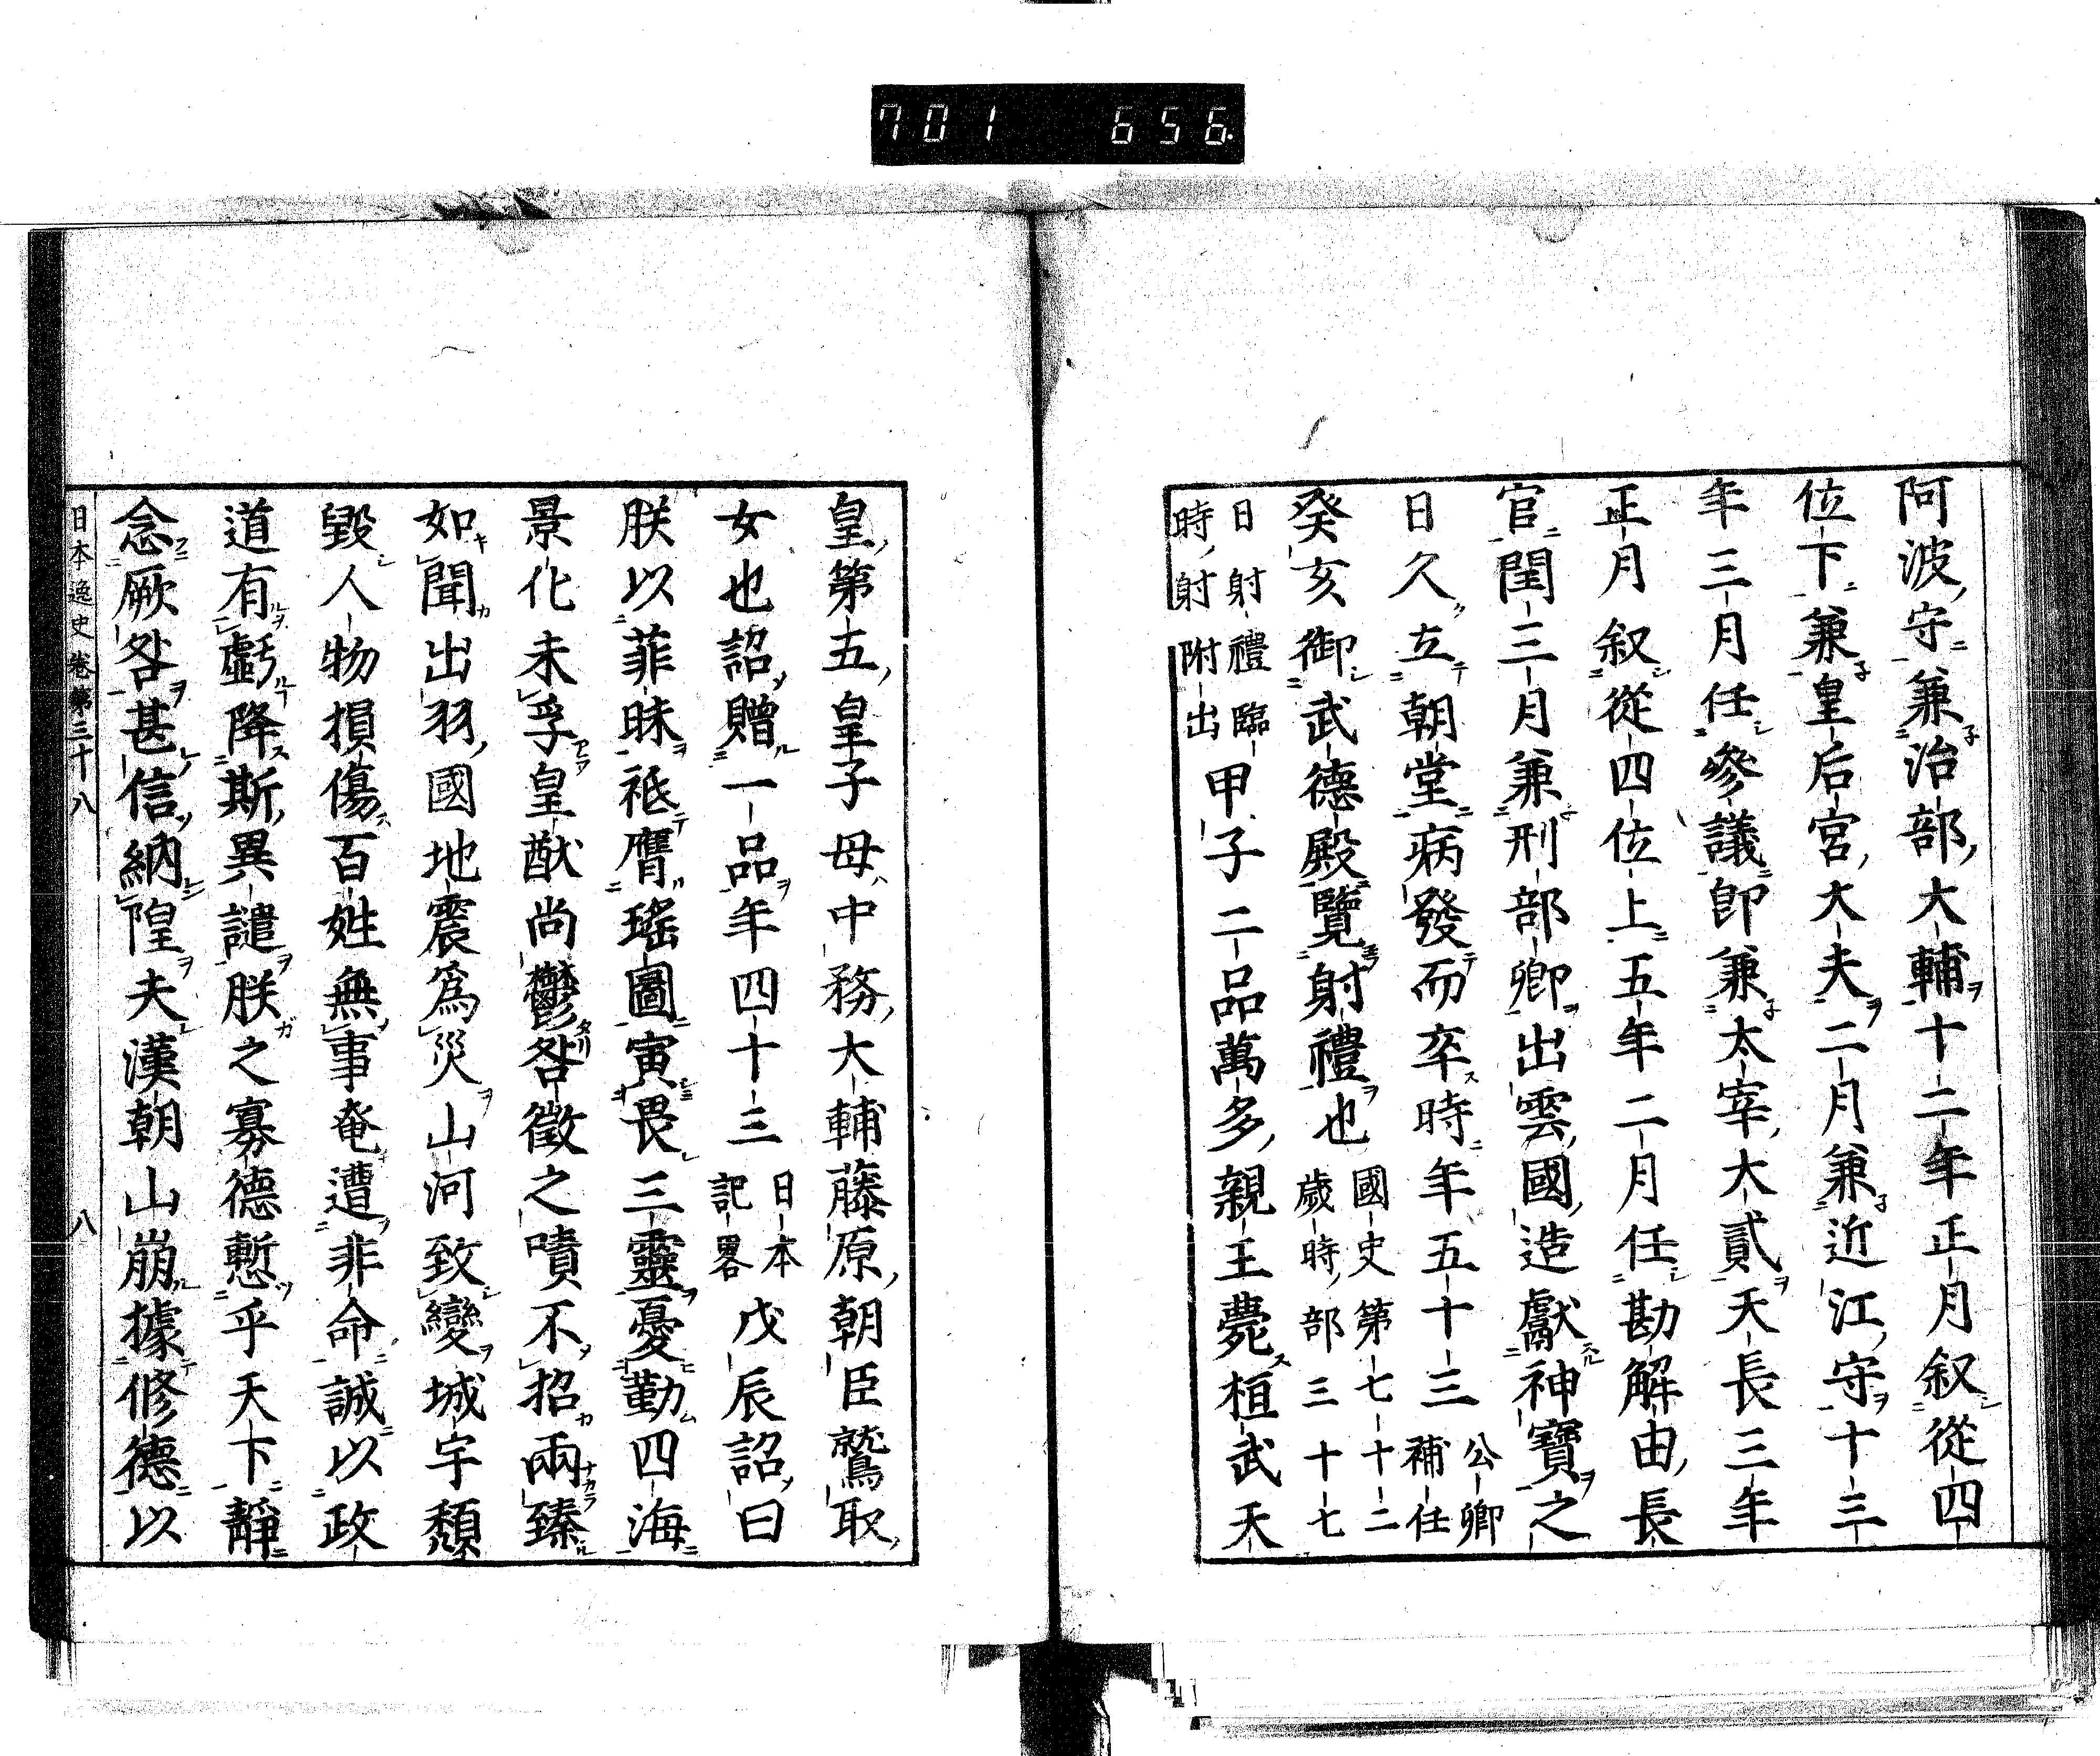 701 656
阿波守兼治部大輔十二年正月叙從四
位下兼皇后宮大夫二月兼近江守十三
年三月任參議卽兼太宰大貳天長三年
正月叙從四位上五年二月任勘解由長
官閏三月兼刑部卿出雲國造獻神寶之
日久立朝堂病發而卒時年五十三公卿補任
癸亥御武德殿覽射禮也國史第七十二歲時部三十七
日射禮臨時射附出甲子二品萬多親王薨桓武天
皇第五皇子母中務大輔藤原朝臣鷲取
女也詔贈一品年四十三日本記畧戊辰詔曰
朕以菲昧祗膺瑤圖寅畏三靈憂勤四海
景化未孚皇猷尚鬱咎徵之嘖不招兩臻
如聞出羽國地震爲災山河致變城宇頽
毀人物損傷百姓無事奄遭非命誠以政
道有虧降斯異譴朕之寡德慙乎天下靜
念厥咎甚信納隍夫漢朝山崩據修德以
日本逸史卷第三十八 八